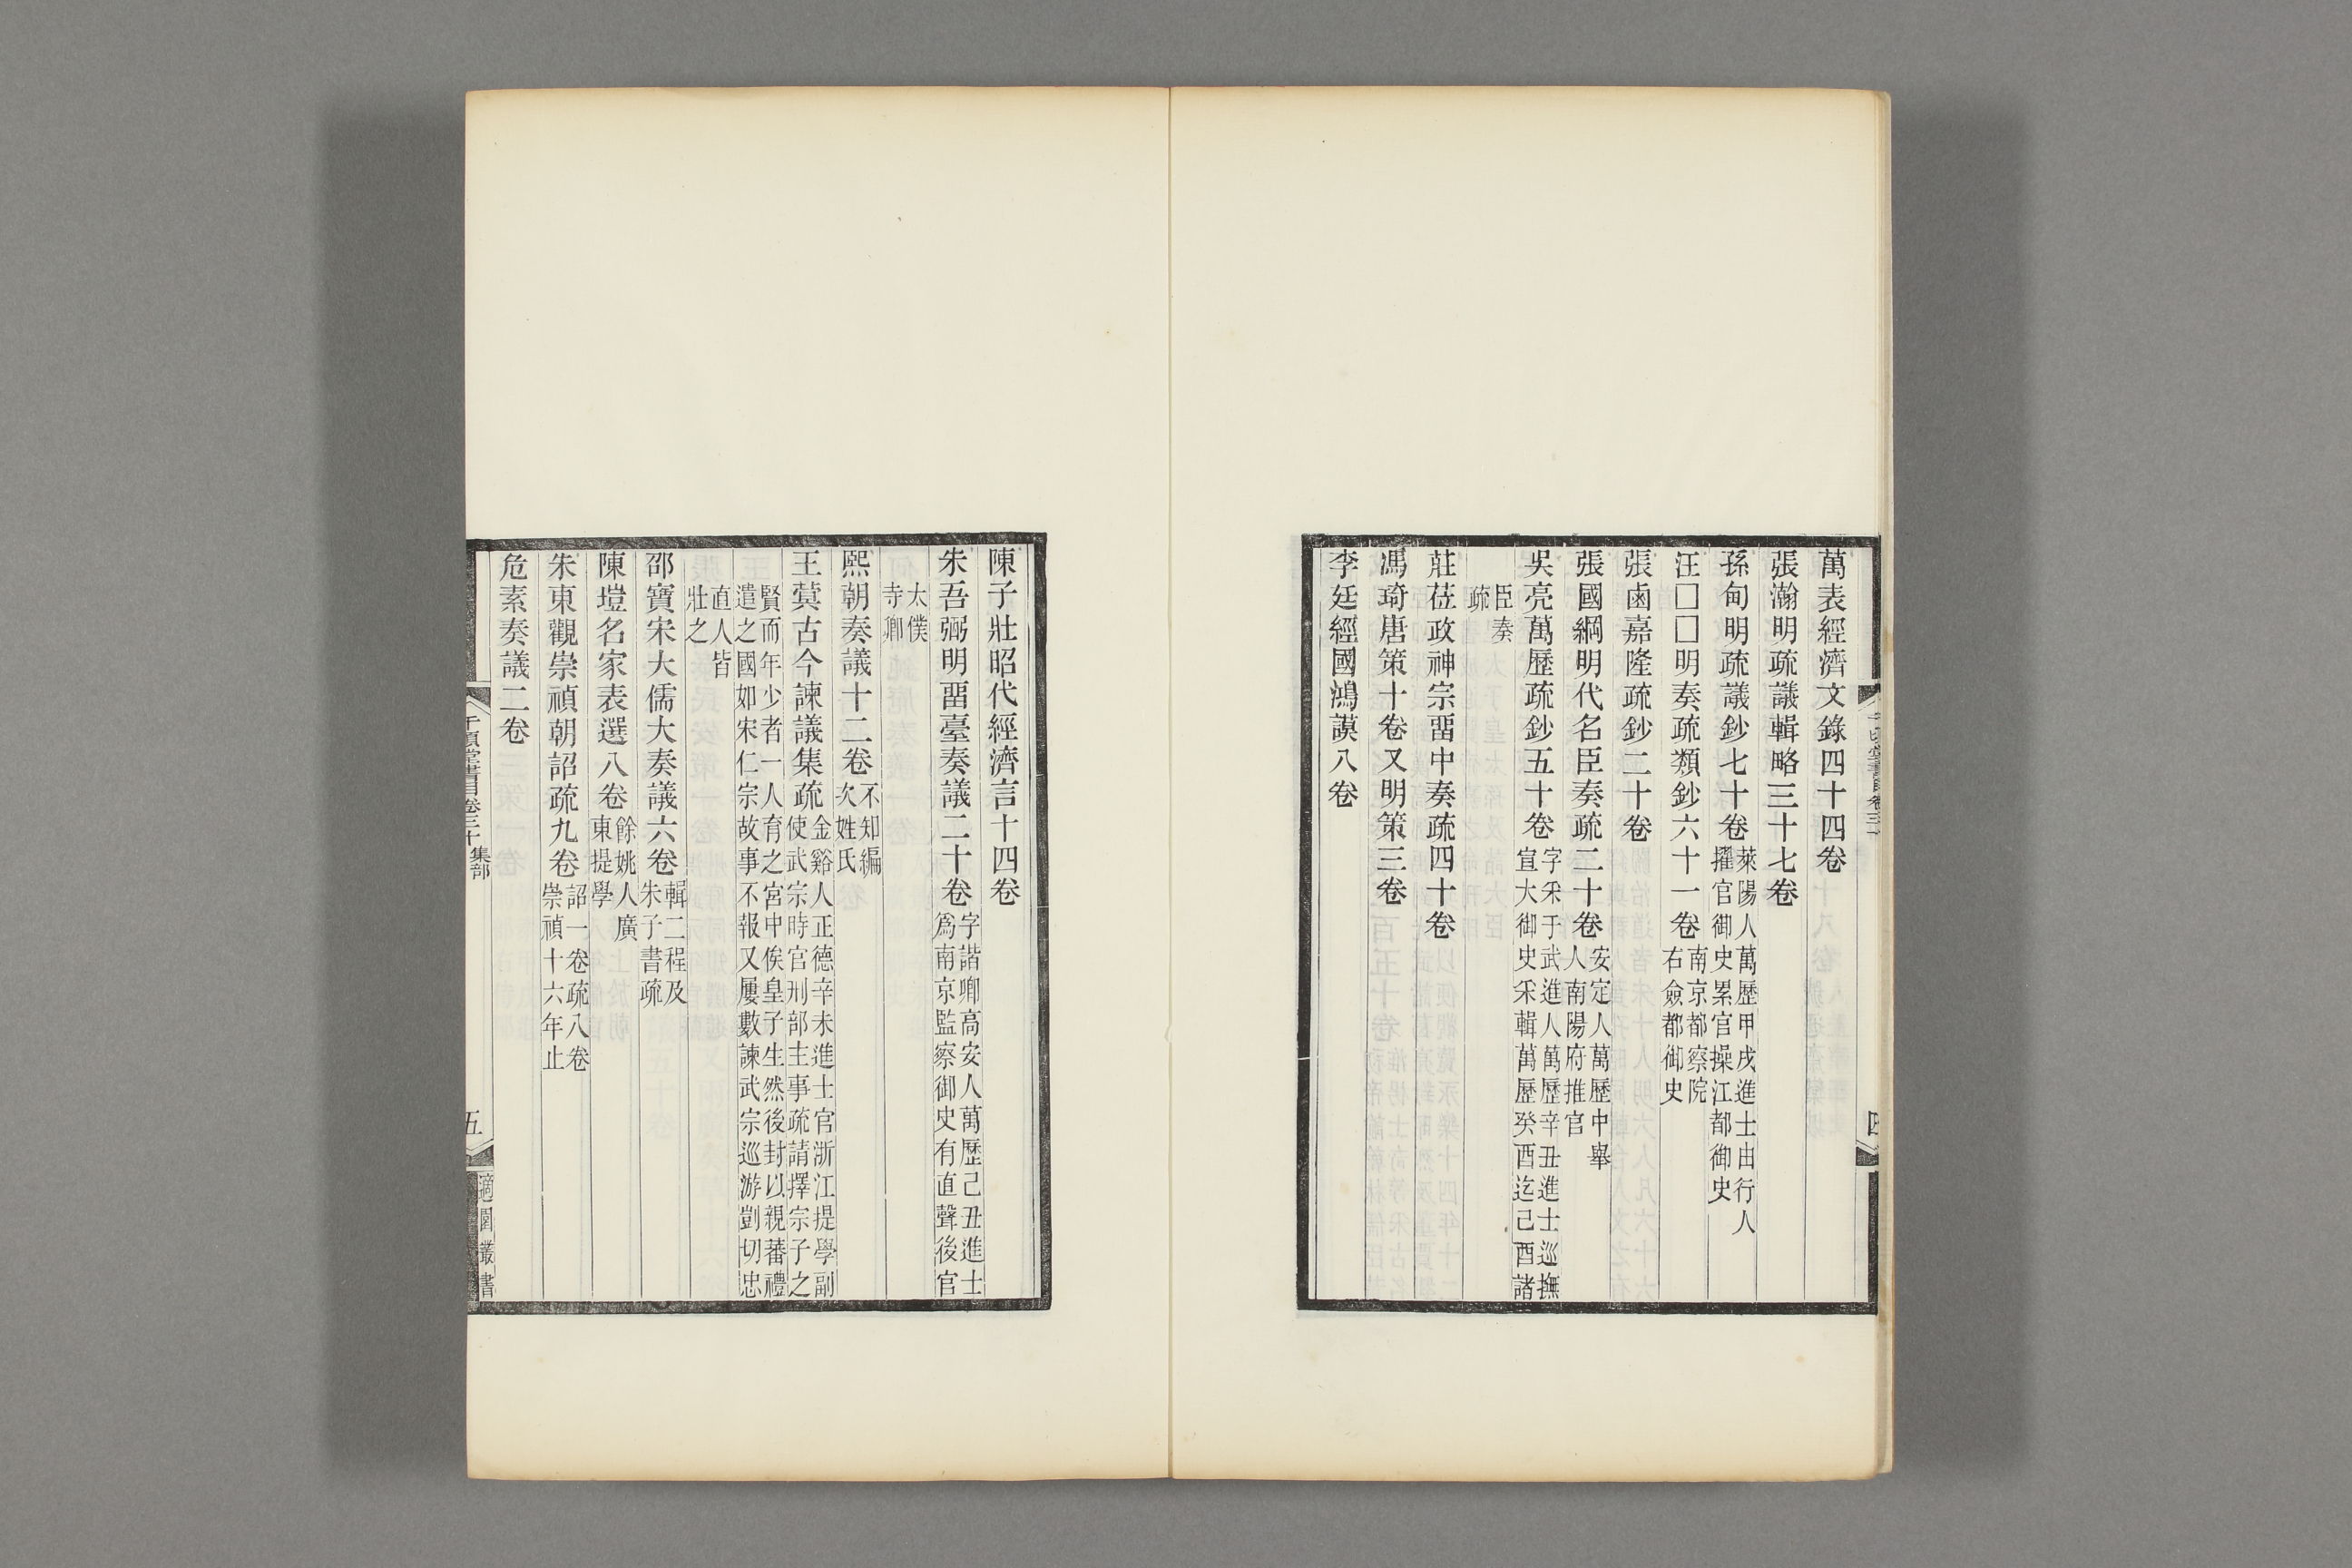 萬表經濟文錄四十四卷
張瀚明疏議輯略三十七卷
孫旬明疏議鈔七十卷萊陽人萬歷甲戌進士由行人擢官御史累官操江都御史
汪□□明奏疏類鈔六十一卷南京都察院右僉都御史
張鹵嘉隆疏鈔二十卷
張國綱明代名臣奏疏二十卷安定人萬歷中舉人南陽府推官
吳亮萬歷疏鈔五十卷字采于武進人萬歷辛丑進士巡撫宣大御史采輯萬歷癸酉迄己酉諸
臣奏疏
莊莅政神宗畱中奏疏四十卷
馮琦唐策十卷又明策三卷
李廷經國鴻謨八卷
陳子壯昭代經濟言十四卷
朱吾弼明畱臺奏議二十卷字諧卿高安人萬歷己丑進士爲南京監察御史有直聲後官
太僕寺卿
熙朝奏議十二卷不知編次姓氏
王蓂古今諫議集疏金谿人正德辛未進士官浙江提學副使武宗時官刑部主事疏請擇宗子之
賢而年少者一人育之宮中俟皇子生然後封以親蕃禮遣之國如宋仁宗故事不報又屢數諫武宗巡游剴切忠
直人皆壯之
邵寶宋大儒大奏議六卷輯二程及朱子書疏
陳塏名家表選八卷餘姚人廣東提學
朱東觀崇禎朝詔疏九卷詔一卷疏八卷崇禎十六年止
危素奏議二卷
千頃堂書目卷三十 集部
五
適園叢書